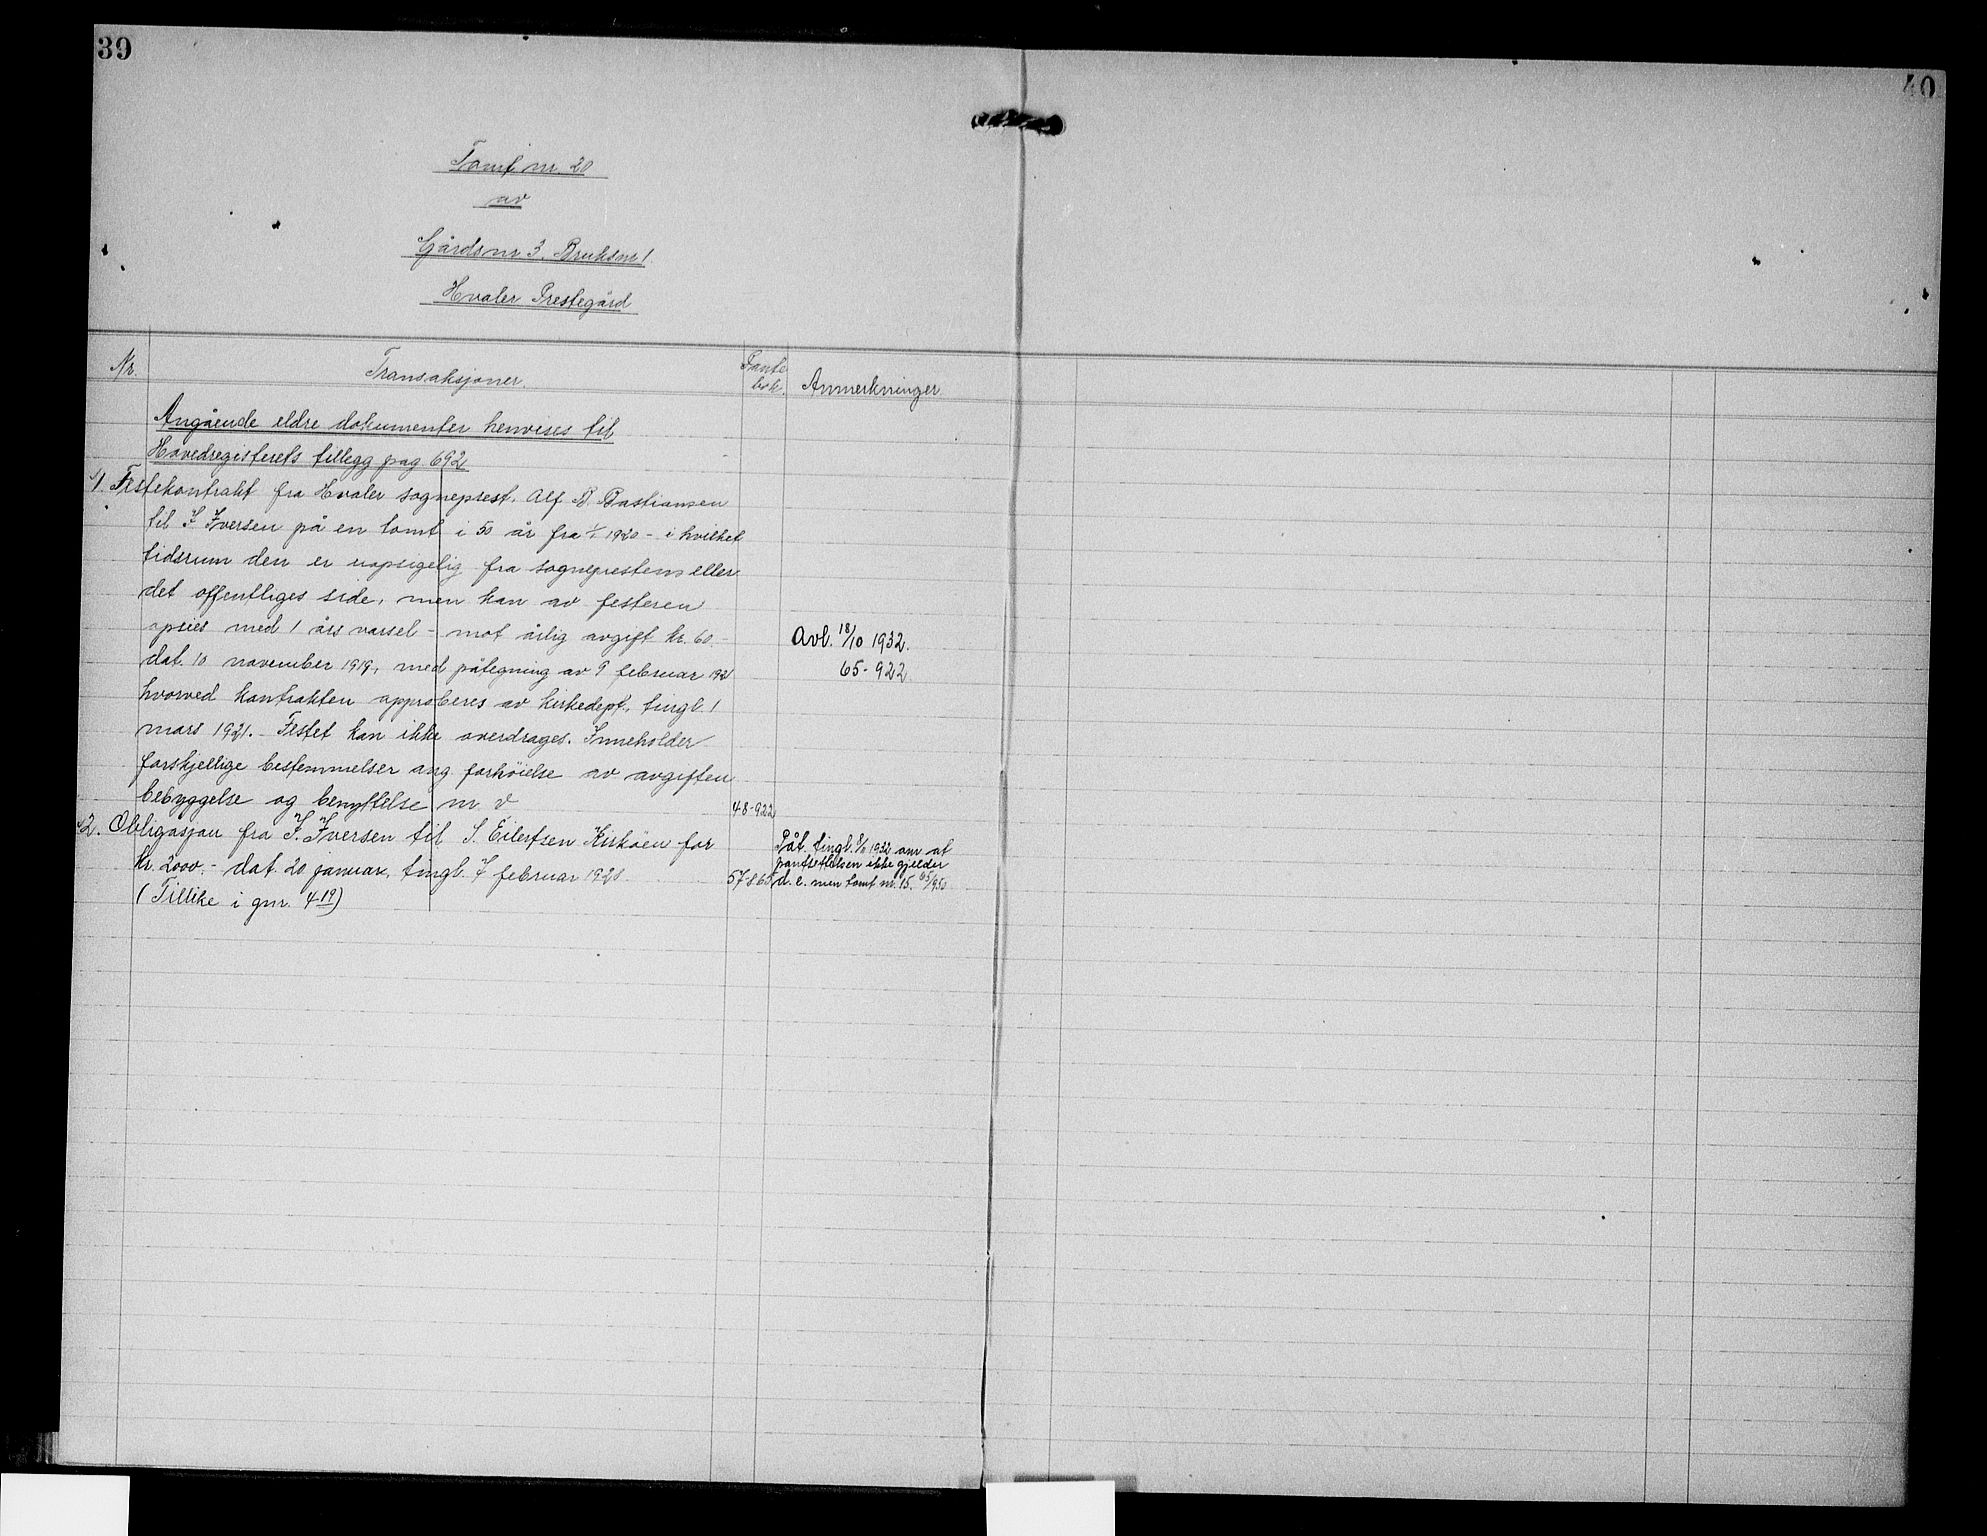 39
40
Tomt nr. 20
av
Gårdsnr 3. Bruksnr 1.
Hvaler Prestegård
Nr.
Transaksjoner.
Pante
bok.
Anmerkninger
Angående eldre dokumenter henvises til
Hovedregisterets tillegg pag 692
1. Festekontrakt fra Hvaler sogneprest, Alf B. Bastiansen
til I Iversen på en tomt i 50 år fra 1/1 1920 - i hvilket
tidsrum den er uopsigelig fra sogneprestens eller
det offentliges side, men kan av festeren
opsies med 1 års varsel - mot årlig avgift kr. 60 -
dat. 10 november 1919, med påtegning av 9 februar 1921
hvorved kontrakten approberes av kirkedept., tingl. 1
mars 1921. - Festet kan ikke overdrages. Inneholder
forskjellige bestemmelser ang. forhöielse av avgiften
bebyggelse og benyttelse m. v
48-922
Avl. 18/10 1932.
65-922.
2. Obligasjon fra I. Iversen til S. Eilertsen Kirköen for
Kr. 2000.- dat. 20 januar, tingl. 7 februar 1928.
57-865
(Tillike i gnr. 4 19)
Påt. tingl. 1932 om at
pantsettelsen ikke gjelder
d. e. men tomt nr. 15. 65/950